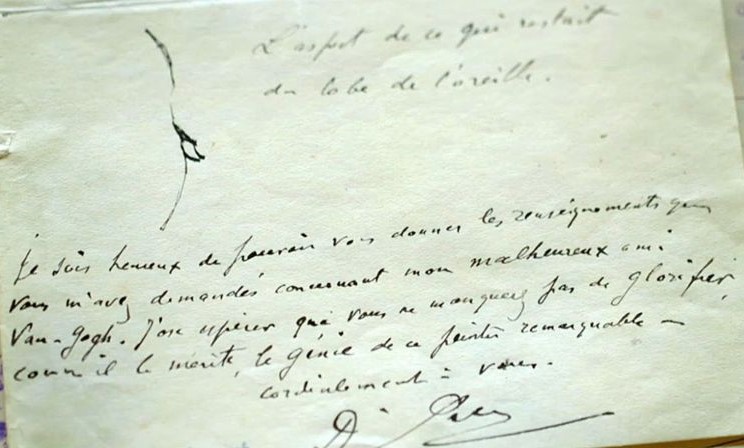 L'aspect de ce qui restait
du lobe de l'oreille.
Je suis heureux de pouvoir vous donner les renseignements que
vous m'avez demandés concernant mon malheureux ami
Van-Gogh. J'ose espérer que vous ne manquerez pas de glorifier,
comme il le mérite, le génie de ce peintre remarquable —
cordialement à vous.
Dr Rey